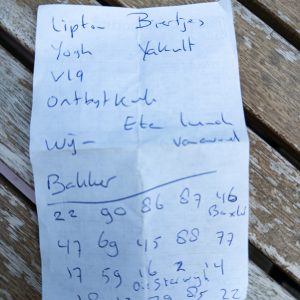 Lipton Biertjes
Yogh Yakult
Vla
Ontbytkoek
Eten lunch
Wijn vanavond
Bakker
22 90 86 87 46
Boxtel
47 69 45 88 77
17 59 16 2 14
Oisterwijk
85 22